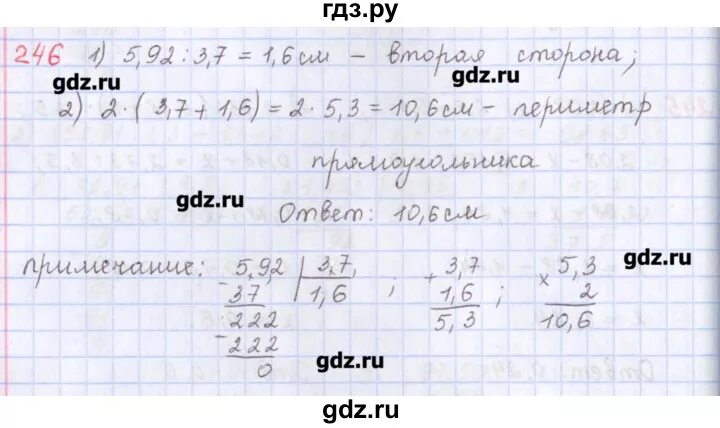 гдз.ру
246 1) 5,92 : 3,7 = 1,6 см – вторая сторона;
gdz.ru gdz.ru
2) 2 · (3,7 + 1,6) = 2 · 5,3 = 10,6 см – периметр
прямоугольника
gdz.ru
Ответ: 10,6 см
примечание: 5,92 | 3,7 ; + 3,7 ; × 5,3
gdz.ru
- 37 1,6 1,6 2
222 5,3 10,6
- 222
0
gdz.ru
gdz.ru